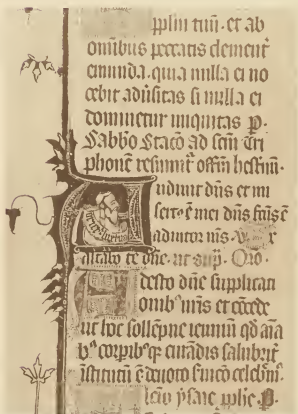 pplm tuũ. et ab
omibus peccatis clement̾
emunda. quia nulla ei no
cebit adũsitas si nulla ei
dominetur iniquitas p.
Sabbo Stacō ad scm̄ Tri
phonē resumit̾ offm̄ hestnũ.
Audiuit dñs et mi
sert⁹ ē mei dñs factꝰ ē
adiutor m̄s.
altabo te dñe. ut supͣ. Oro.
Adesto dñe supplicati
onibꝰ nr̄is et cōcede
ut hoc sollēpne ieiuniũ qd̄ aīa
bꝰ corpibꝰqꝫ curādis salubrit̾
istitutũ ē deuoto ƥuicō celebrm̄.
lcō ysaie pphe